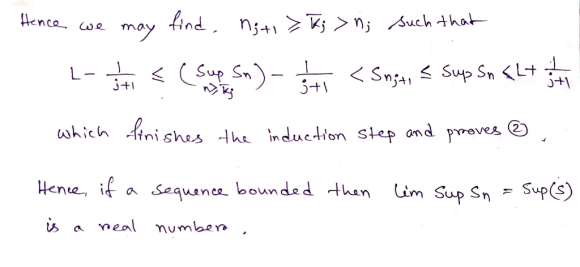 Hence we may find. n_{j+1} ≥ k̄_j > n_j such that
L - 1/(j+1) ≤ (Sup_{n≥k̄_j} Sn) - 1/(j+1) < S_{n_{j+1}} ≤ Sup Sn < L + 1/(j+1)
which finishes the induction step and proves ②.
Hence, if a sequence bounded then lim Sup Sn = Sup(S)
is a real numbers.